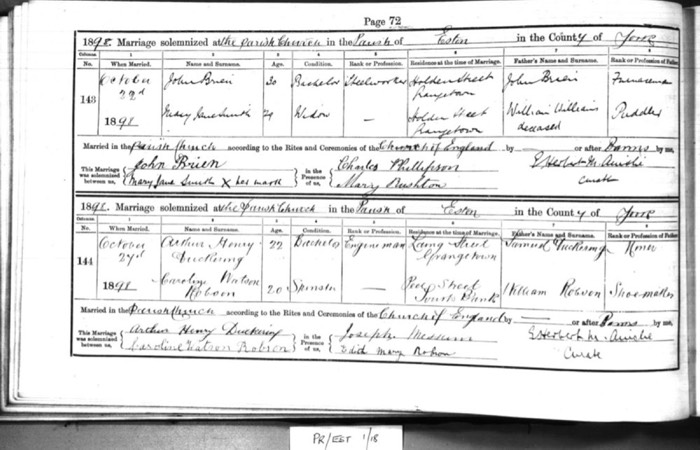 Page 72
1898. Marriage solemnized at the Parish Church in the Parish of Eston in the County of York
Columns 1 2 3 4 5 6 7 8
No. When Married. Name and Surname. Age. Condition. Rank or Profession. Residence at the time of Marriage. Father's Name and Surname. Rank or Profession of Father
143 October 22d 1898 John Brien 30 Bachelor Steelworker Holden Street Grangetown John Brien Furnaceman
Mary Jane Smith Widow — Holden Street Grangetown William Williams deceased Puddler
Married in the Parish Church according to the Rites and Ceremonies of the Church of England by — or after Banns by me,
This Marriage was solemnized between us, John Brien in the Presence of us, Charles Phillipson
Mary Jane Smith X her mark Mary Rushton Curate
1898. Marriage solemnized at the Parish Church in the Parish of Eston in the County of York
Columns 1 2 3 4 5 6 7 8
No. When Married. Name and Surname. Age. Condition. Rank or Profession. Residence at the time of Marriage. Father's Name and Surname. Rank or Profession of Father
144 October 1898 Arthur Henry Duckering 22 Bachelor Engineman Street Grangetown Samuel Duckering Miner
Caroline Watson Robson 20 Spinster — Street South Bank William Robson Shoemaker
Married in the Parish Church according to the Rites and Ceremonies of the Church of England by — or after Banns by me,
This Marriage was solemnized between us, Arthur Henry Duckering in the Presence of us, Joseph
Caroline Watson Robson Edith Mary Robson Curate
PR/EST 1/18